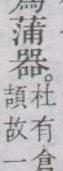 為蒲器。
杜有倉
頡故一